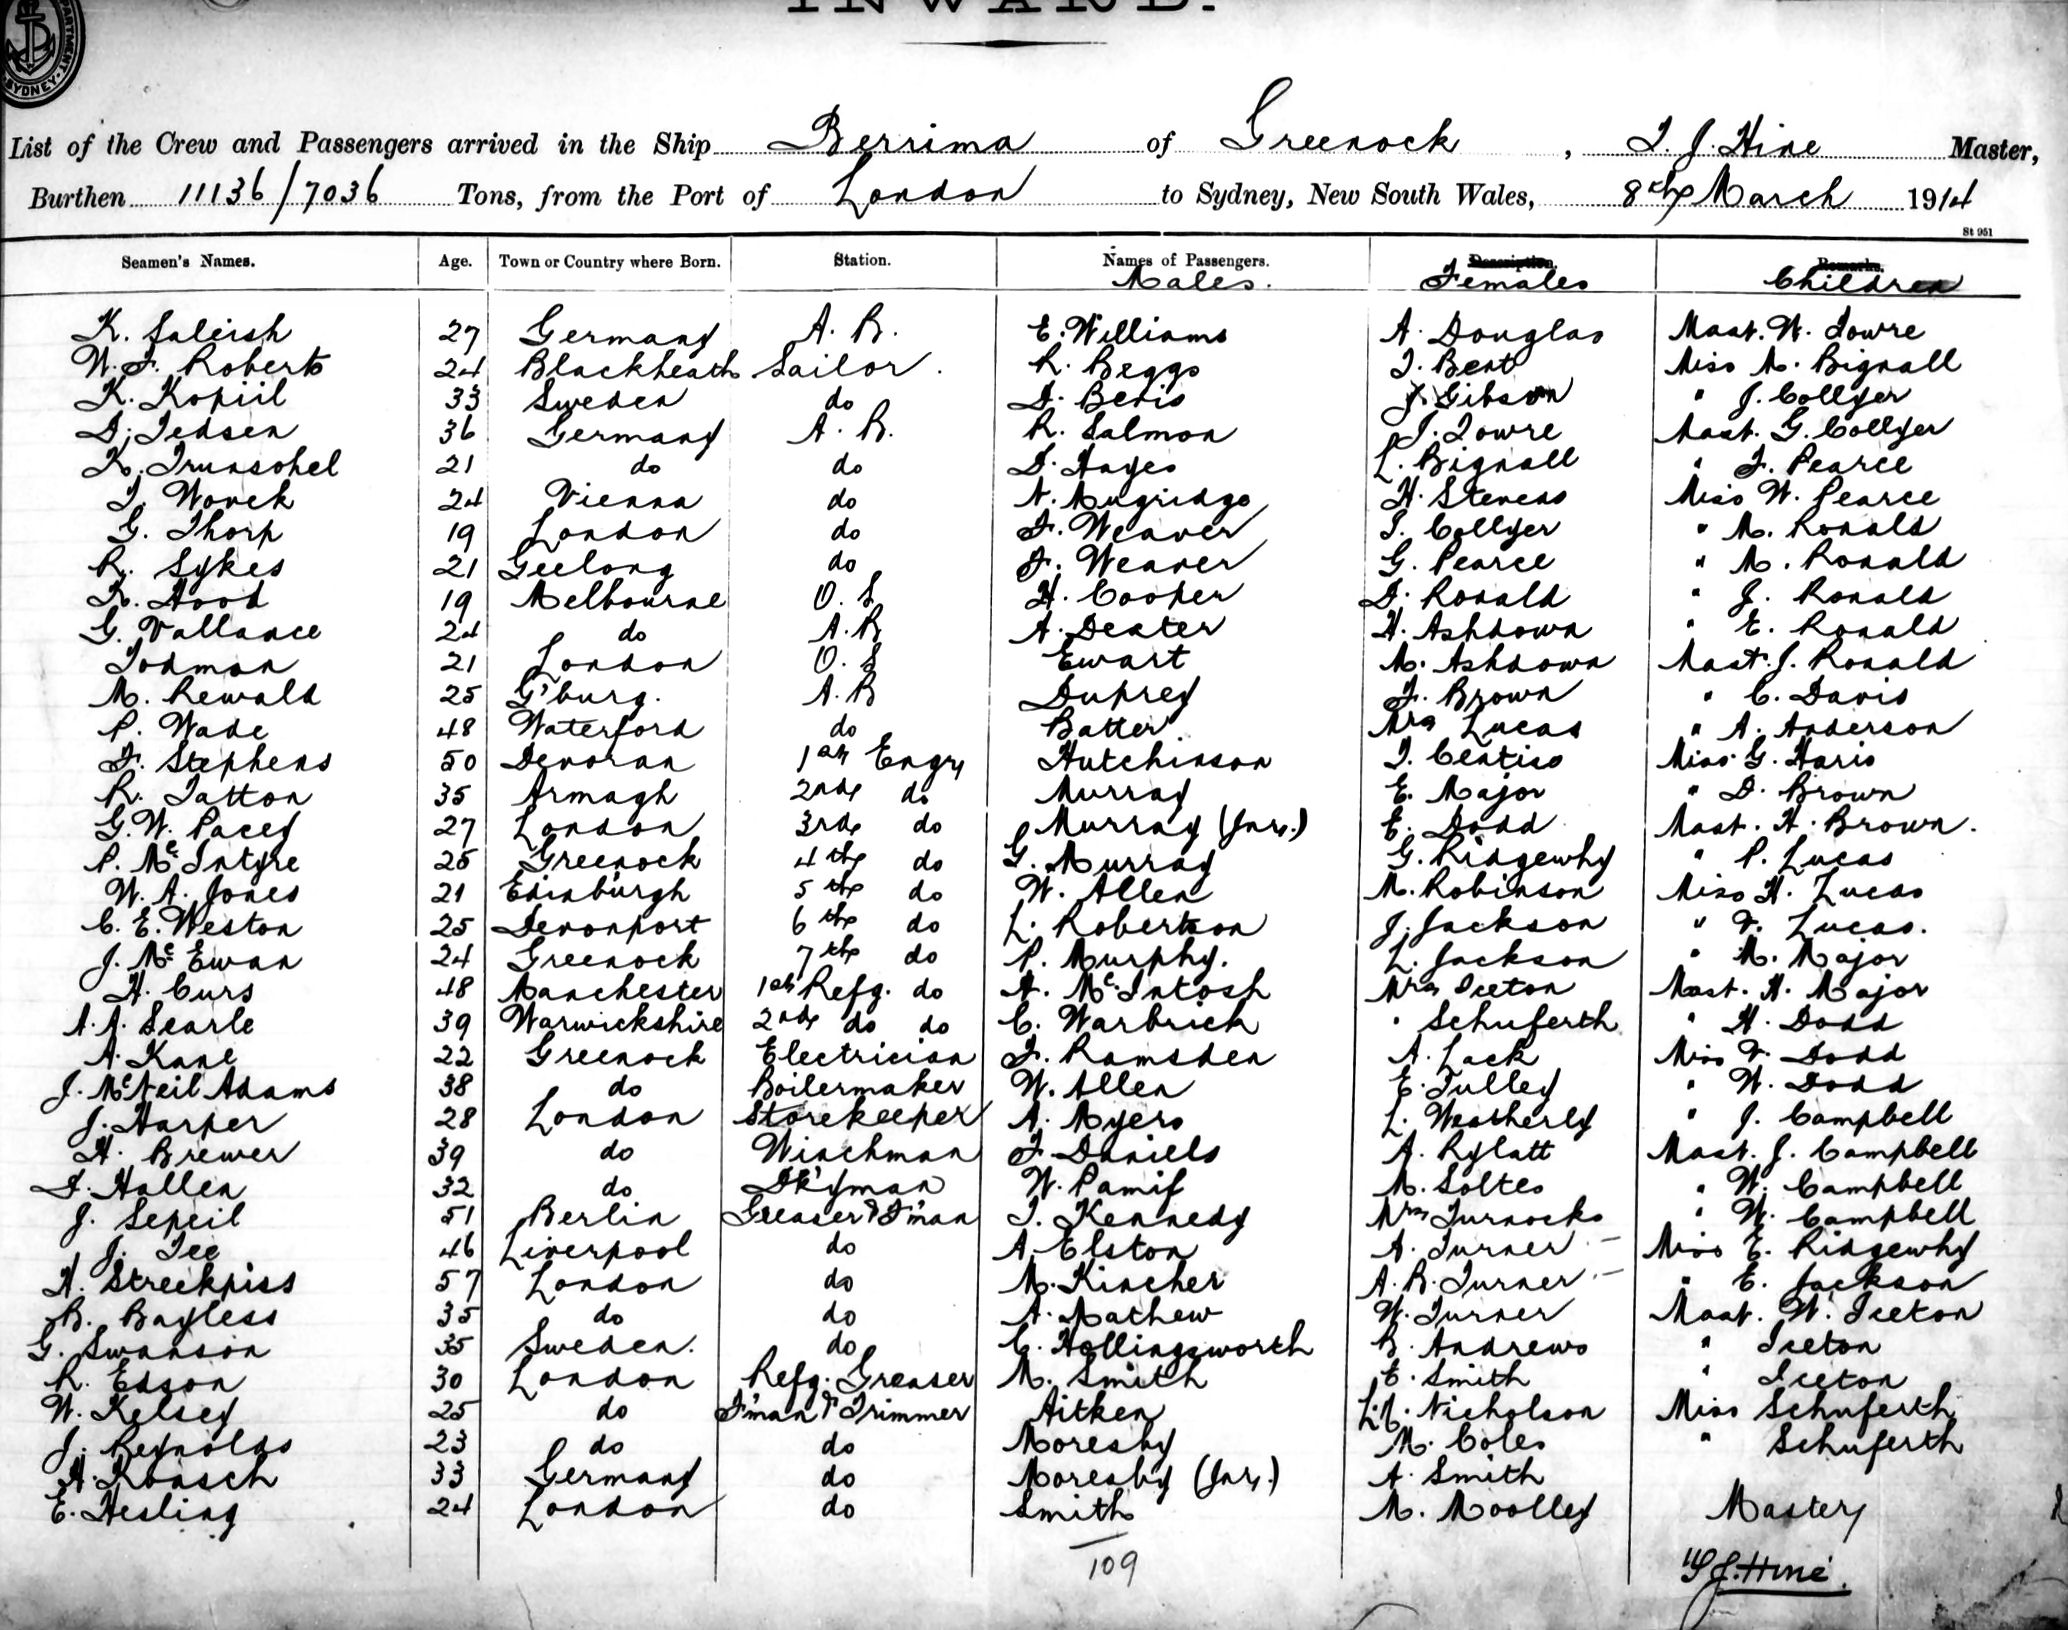 INWARD.
DEPARTMENT. SYDNEY.
List of the Crew and Passengers arrived in the Ship Berrima of Greenock, T. J. Hine Master,
Burthen 11136/7036 Tons, from the Port of London to Sydney, New South Wales, 8th March 1914
St 951
Seamen's Names. Age. Town or Country where Born. Station. Names of Passengers. Description. Remarks.
Males. Females Children
K. Saleish 27 Germany A. B. E. Williams A. Douglas Mast. W. Towre
W. F. Roberts 24 Blackheath Sailor. R. Beggs T. Bent Miss M. Bignall
K. Kopiil 33 Sweden do D. Bevis J. Gibson " J. Collyer
D. Tedsen 36 Germany A. B. R. Salmon J. Towre Mast. G. Collyer
K. Trunschel 21 do do D. Hayes L. Bignall " F. Pearce
T. Wovek 24 Vienna do N. Mugridge H. Stevens Miss W. Pearce
G. Thorp 19 London do F. Weaver T. Collyer " M. Ronald
R. Sykes 21 Geelong do F. Weaver G. Pearce " M. Ronald
R. Hood 19 Melbourne O. S H. Cooper D. Ronald " J. Ronald
G. Vallance 24 do A. B A. Dexter H. Ashdown " E. Ronald
Todman 21 London O. S Ewart M. Ashdown Mast. J. Ronald
M. Rewald 25 G'burg. A. B Duprey F. Brown " C. Davis
P. Wade 48 Waterford do Batter Mrs Lucas " A. Anderson
F. Stephens 50 Devoran 1st Engr Hutchinson T. Centiss Miss G. Haris
R. Tatton 35 Armagh 2nd do Murray E. Major " D. Brown
G. W. Pacey 27 London 3rd do Murray (Jnr.) E. Dodd Mast. H. Brown.
P. McIntyre 25 Greenock 4th do G. Murray G. Ridgewhy " P. Lucas
W. A. Jones 21 Edinburgh 5th do W. Allen M. Robinson Miss H. Lucas
C. E. Weston 25 Devonport 6th do L. Robertson J. Jackson " V. Lucas.
J. McEwan 24 Greenock 7th do P. Murphy. L. Jackson " M. Major
H. Curs 48 Manchester 1st Refg. do A. McIntosh Mrs Iceton Mast. H. Major
A. A. Searle 39 Warwickshire 2nd do do C. Warbrick " Schuferth " H. Dodd
A. Kane 22 Greenock Electrician F. Ramsden A. Lack Miss V. Dodd
J. McNeil Adams 38 do Boilermaker W. Allen E. Tulley " W. Dodd
J. Harper 28 London Storekeeper A. Myers L. Weatherly " J. Campbell
H. Brewer 39 do Winchman F. Daniels A. Rylatt Mast. J. Campbell
D. Hallen 32 do Dk'yman W. Pamif M. Soltes " W. Campbell
J. Sepeil 51 Berlin Greaser & F'man T. Kennedy Mrs Turnocks " W. Campbell
J. Tee 46 Liverpool do A. Elston A. Turner Miss E. Ridgewhy
H. Streekpiss 57 London do M. Kincher A. B. Turner " E. Jackson
B. Bayless 35 do do A. Mathew W. Turner Mast. W. Iceton
G. Swanson 35 Sweden. do C. Hollingsworth B. Andrews " Iceton
R. Edson 30 London Refg. Greaser M. Smith E. Smith " Iceton
W. Kelsey 25 do F'man & Trimmer Aitken Nicholson Miss Schuferth
J. Reynolds 23 do do Moresby M. Coles " Schuferth
H. Ronsch 33 Germany do Moresby (Jnr.) A. Smith
E. Hesling 24 London do Smith M. Moolley Master
109
T J. Hine.